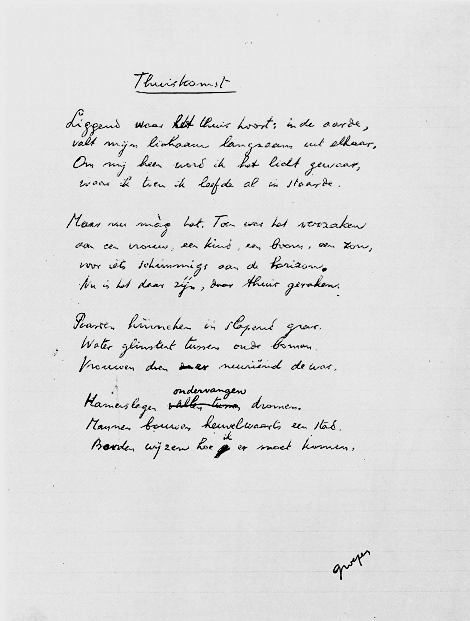 Thuiskomst
Liggend waar het thuis hoort: in de aarde,
valt mijn lichaam langzaam uit elkaar,
Om mij heen word ik het licht gewaar,
waar ik toen ik leefde al in staarde.
Maar nu màg het. Toen was het verzaken
aan een vrouw, een kind, een boom, een zon,
voor iets schimmigs aan de horizon.
Nu is het daar zijn, daar thuis geraken.
Paarden hinniken in slapend gras.
Water glinstert tussen oude bomen.
Vrouwen doen neuriënd de was.
ondervangen
Hamerslagen dromen.
Mannen bouwen heuvelwaarts een stad.
ik
Borden wijzen hoe er moet komen.